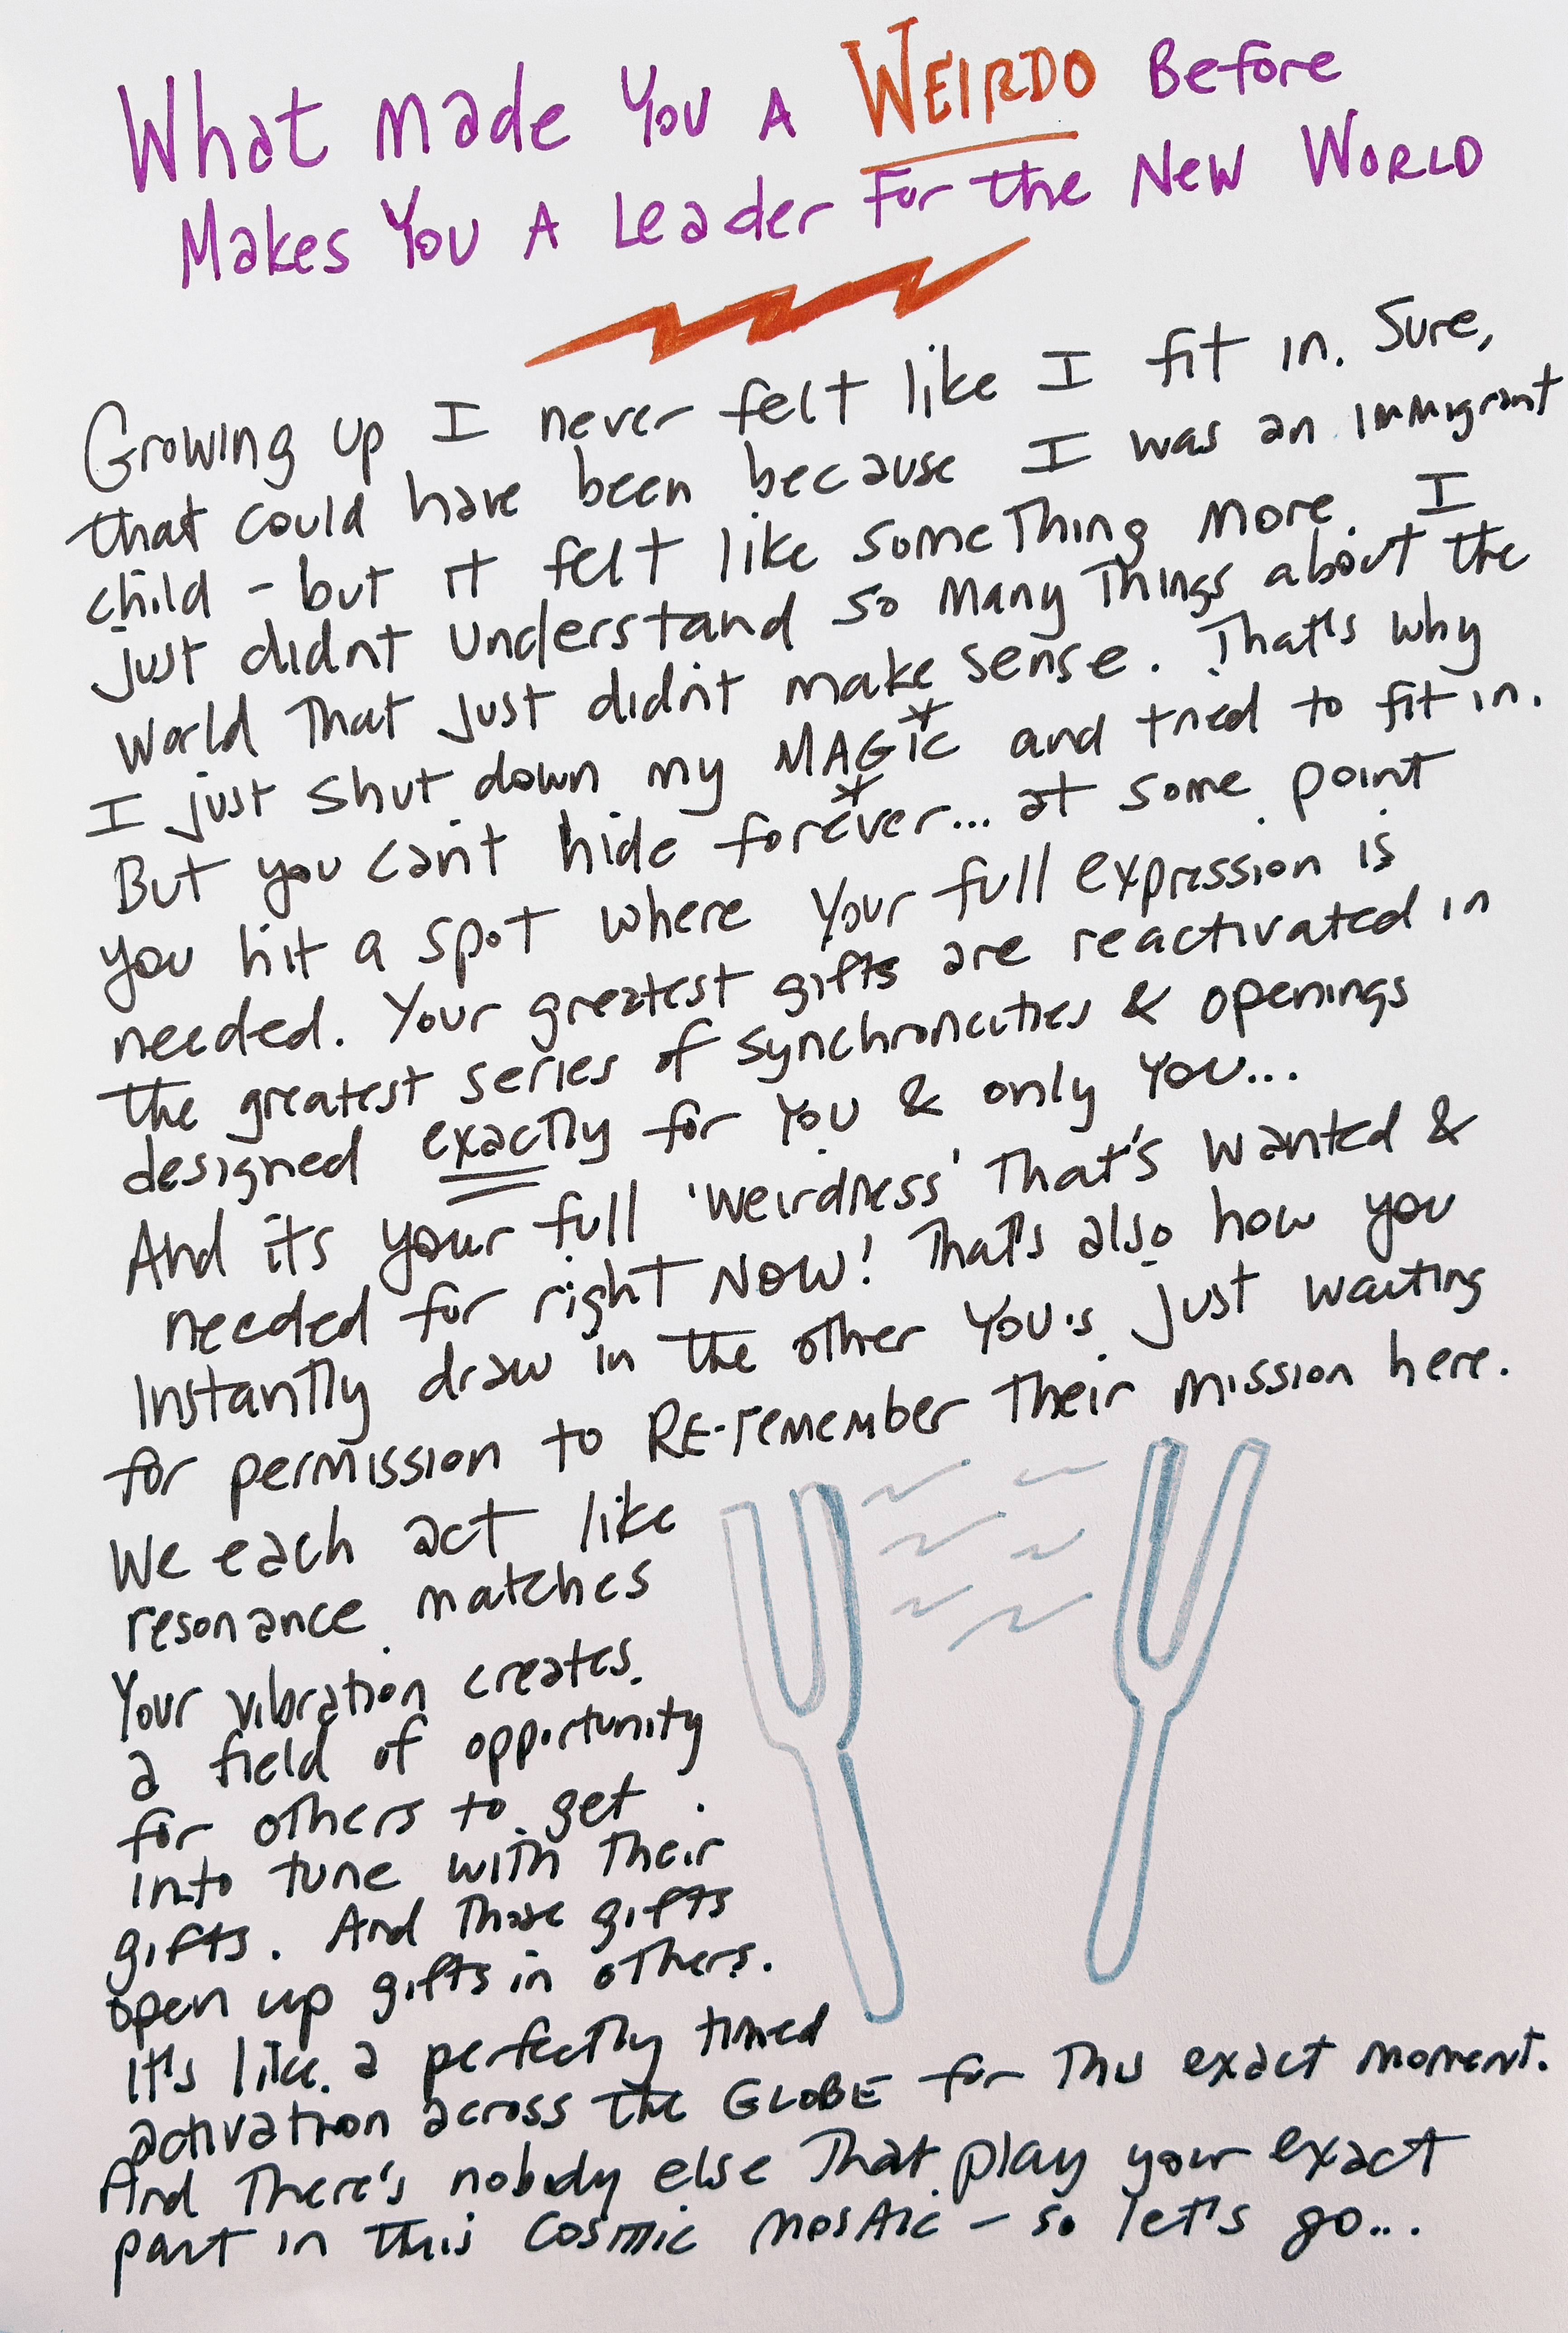 What made You A WEIRDO Before
Makes You A Leader For the New World
Growing up I never felt like I fit in. Sure,
that could have been because I was an immigrant
child - but it felt like something more. I
just didn't understand so many things about the
world that just didn't make sense. That's why
I just shut down my *MAGic* and tried to fit in.
But you can't hide forever... at some point
you hit a spot where your full expression is
needed. Your greatest gifts are reactivated in
the greatest series of synchroncities & openings
designed exactly for you & only you...
And its your full 'weirdness' that's wanted &
needed for right NOW! That's also how you
Instantly draw in the other YOU's just waiting
for permission to RE-remember their mission here.
We each act like
resonance matches
Your vibration creates
a field of opportunity
for others to get
into tune with their
gifts. And those gifts
open up gifts in others.
It's like a perfectly timed
activation across the GLOBE for this exact moment.
And there's nobody else that play your exact
part in this cosmic mosaic - so let's go...